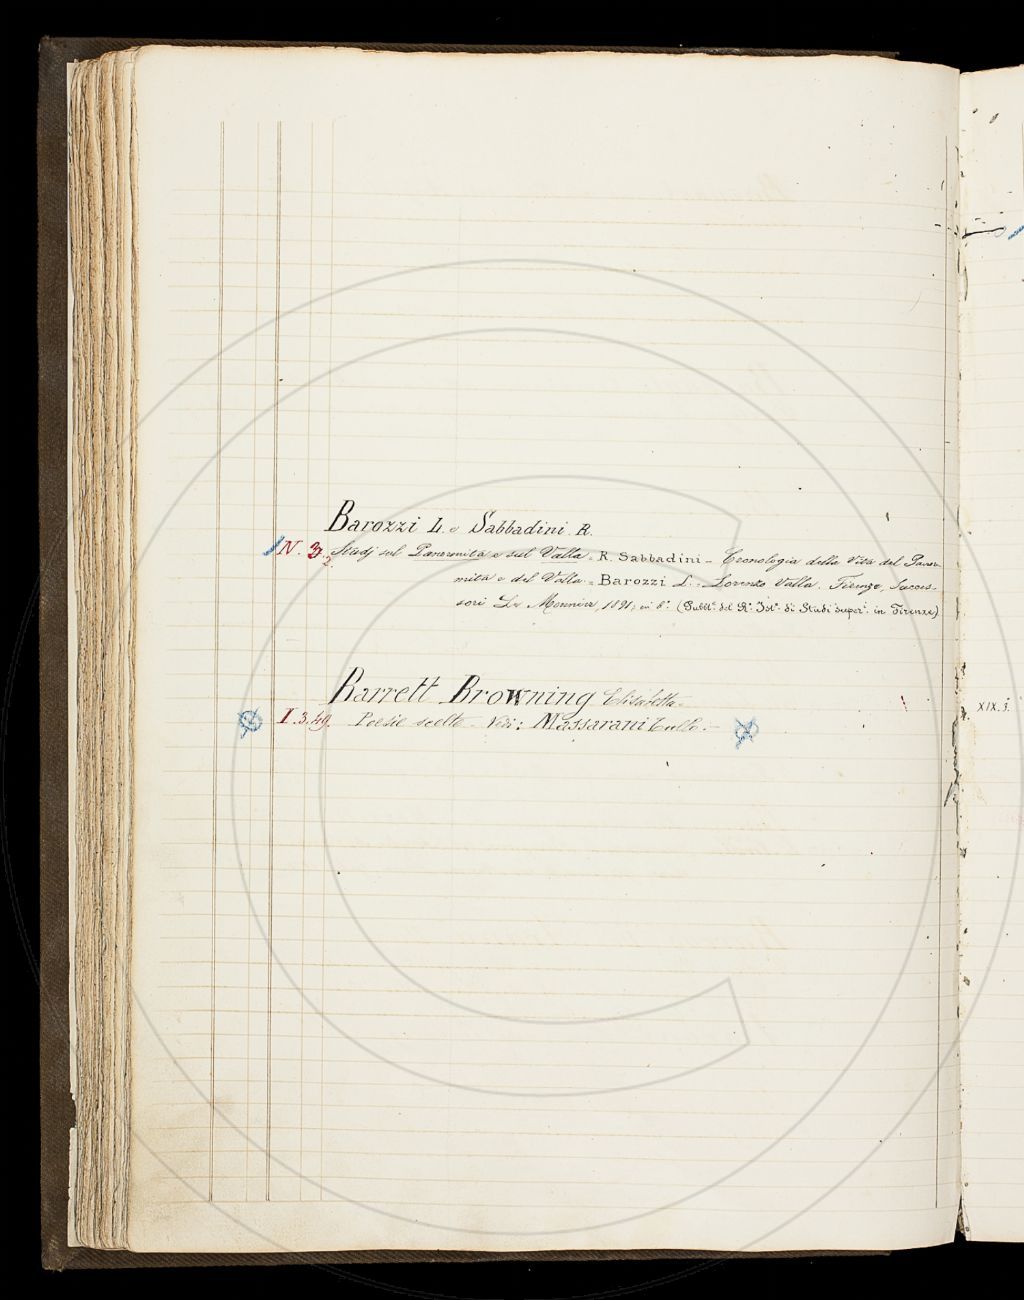 Barozzi L. e Sabbadini R.
N. 3. 2. Studj sul Panormita e sul Valla = R. Sabbadini - Cronologia della Vita del Panor-
mita e del Valla = Barozzi L. - Lorenzo Valla. Firenze, Succes-
sori Le Monnier, 1891, in 8°. (Pubbl. del R°. Ist°. di Studi super. in Firenze)
Barrett Browning Elisabetta.
I. 3. 49. Poesie scelte - Vedi: Massarani Tullo. -
XIX. J.